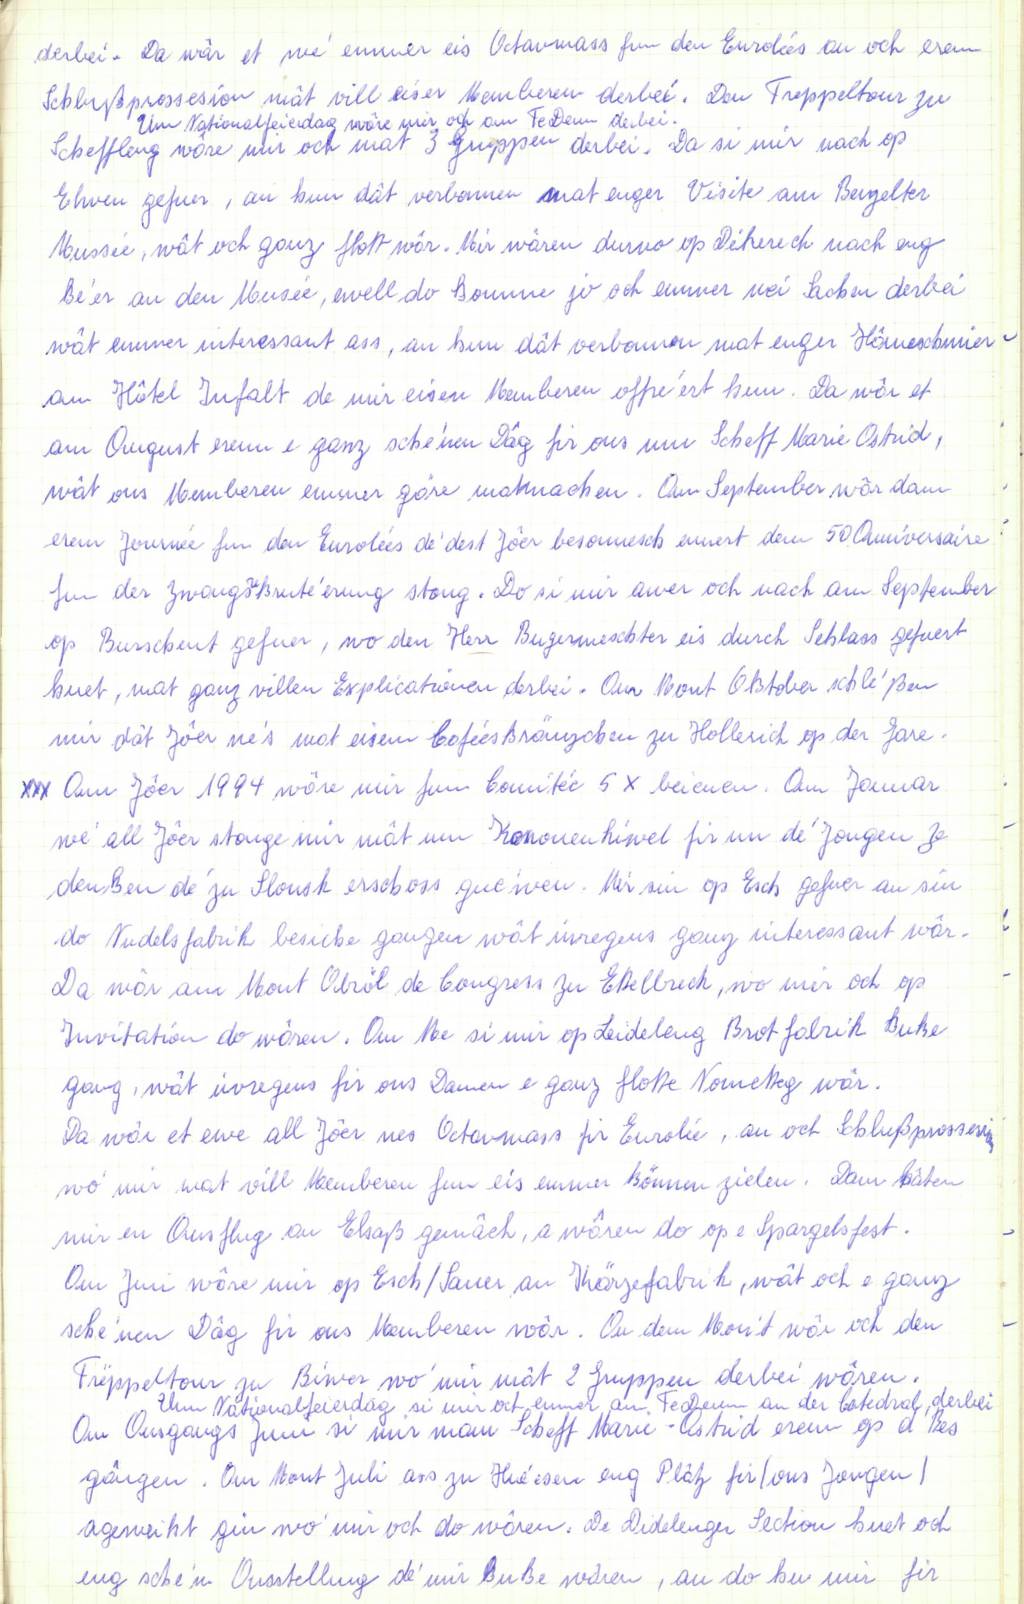 derbei. Da wâr et wé emmer eis Octavmass fun den Enrolés an och erem
Schlußprossesion mât vill eiser Memberen derbei. Den Treppeltour zu
Um Nationalfeierdag wôre mir och am TeDeum derbei.
Scheffleng wôre mir och mat 3 Gruppen derbei. Da si mir nach op
Ehnen gefuer, an hun dât verbonnen mat enger Visite am Benzelter
Mussée, wât och ganz flott wôr. Mir wâren durno op Dékerech nach eng
Bé'er an den Musée, well do komme jo och emmer nei Sachen derbei
wât emmer interessant ass, an hun dât verbonnen mat enger Hâmeschmier
am Hôtel Infalt de mir eisen Memberen offréert hun. Da wôr et
am August erem e ganz schéinen Dâg fir ons um Scheff Marie Ostrid,
wât ons Memberen emmer gäre matmachen. Am September wôr dann
erem Journée fun den Enrolés dé dest Jôer besonnesch ennert dem 50 Anniversaire
fun der Zwangsrekruté'erung stong. Do si mir awer och nach am September
op Burschent gefuer, wo den Herr Bugermeschter eis durch Schlass gefuert
huet, mat ganz villen Explicatiounen derbei. Am Mont Oktober schlé'ßen
mir dât Jôer né's mat eisem Caféeskränzchen zu Hollerich op der Gare.
xxx Am Jôer 1994 wôre mir fum Comitée 5 X beienen. Am Januar
wé all Jôer stonge mir mât um Kanonenhiwel fir un dé Jongen ze
denken dé zu Slonsk erschoss gue'wen. Mir sin op Esch gefuer an sin
do Nudelsfabrik besiche gangen wât iwregens ganz interessant wâr.
Da wôr am Mont Abrël de Congress zu Ettelbreck, wo mir och op
Invitatiôn do wôren. Am Me si mir op Leideleng Brotfabrik kuke
gang, wât iwregens fir ons Damen e ganz flotte Nometteg wâr.
Da wôr et ewe all Jôer nes Octavmass fir Enrolée, an och Schlußprossesion
wo mir mat vill Memberen fun eis emmer kônnen zielen. Dann hâten
mir en Ausflug an Elsaß gemâch, a wôren do op e Spargelsfest.
Am Juni wôre mir op Esch/Sauer an Kärzefabrik, wât och e ganz
schéinen Dâg fir ons Memberen wôr. An dem Mon't wôr och den
Trëppeltour zu Biwer wo mir mât 2 Gruppen derbei wôren.
Um Nâtionalfeierdag si mir och emmer am TeDeum an der Catedral derbei
Am Ausgangs Juni si mir mam Scheff Marie-Astrid erem op d'Rees
gângen. Am Mont Juli ass zu eng Plâtz fir/ons Jongen/
ageweiht gin wo mir och do wôren. De Didelenger Section huet och
eng schéin Ausstellung dé mir kuke wôren, an do hu mir fir